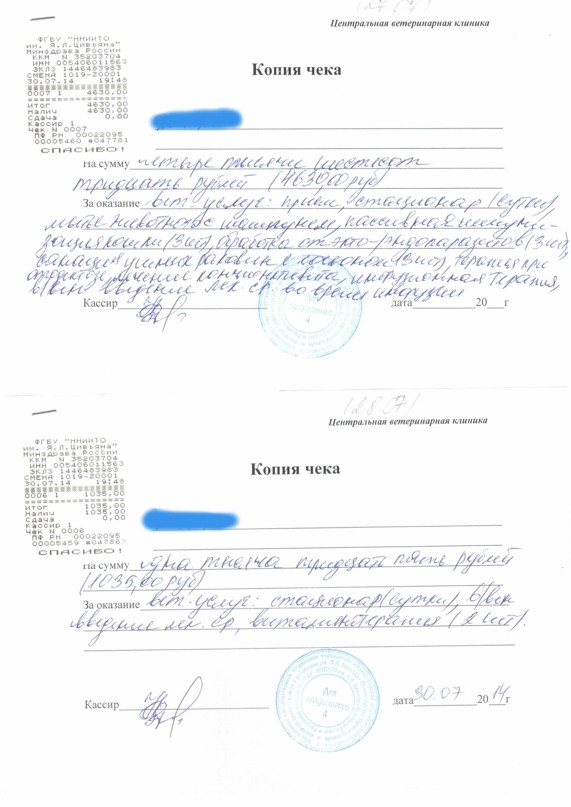 (27.07)
Центральная ветеринарная клиника
ФГБУ "ННИИТО
им. Я.Л.Цивьяна"
Минздрава России
ККМ N 35203704
ИНН 005406011563
ЭКЛЗ 1446483983
СМЕНА 1019-Z0001
30.07.14 19:48
0007 1 4630,00
ИТОГ 4630,00
Налич 4630,00
Сдача 0,00
Кассир 1
Чек N 0007
ПФ РН 00022095
00005460 #047781
СПАСИБО!
Копия чека
На сумму четыре тысячи шестьсот
тридцать рублей (4630,00 руб)
За оказание вет. услуг: прием, стационар (сутки),
мытье животного с шампунем, пассивная иммуни-
зация кошки (3 шт), обработка от экто-эндопаразитов (3 шт),
санация ушных раковин с лосьоном (3 шт), терапия при
лечение конъюнктивита, инфузионная терапия,
в/вен введение лек. ср. во время инфузии
Кассир
дата 20 г
4
(28.07)
Центральная ветеринарная клиника
ФГБУ "ННИИТО
им. Я.Л.Цивьяна"
Минздрава России
ККМ N 35203704
ИНН 005406011563
ЭКЛЗ 1446483983
СМЕНА 1019-Z0001
30.07.14 19:48
0006 1 1035,00
ИТОГ 1035,00
Налич 1035,00
Сдача 0,00
Кассир 1
Чек N 0006
ПФ РН 00022095
00005459 #047863
СПАСИБО!
Копия чека
На сумму одна тысяча тридцать пять рублей
(1035,00 руб)
За оказание вет. услуг: стационар (сутки), в/вен
введение лек. ср, витаминотерапия (2 шт).
Кассир
Для
документов
4
дата 30.07 2014 г